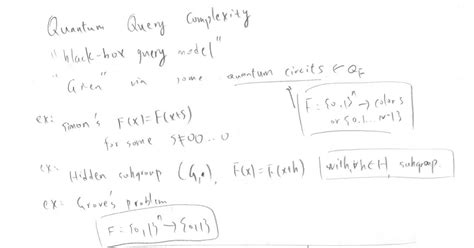 Quantum Query Complexity
"black-box query model"
"Given" via some quantum circits ← Q_F
F: {0,1}^n → colors
or {0,1...m-1}
ex: Simon's F(x)=F(x+s)
for some s≠00...0
ex: Hidden subgroup (G,•), F(x)=F(x+h) with ∀h∈H subgroup.
ex: Grover's problem
F: {0,1}^n → {0,1}